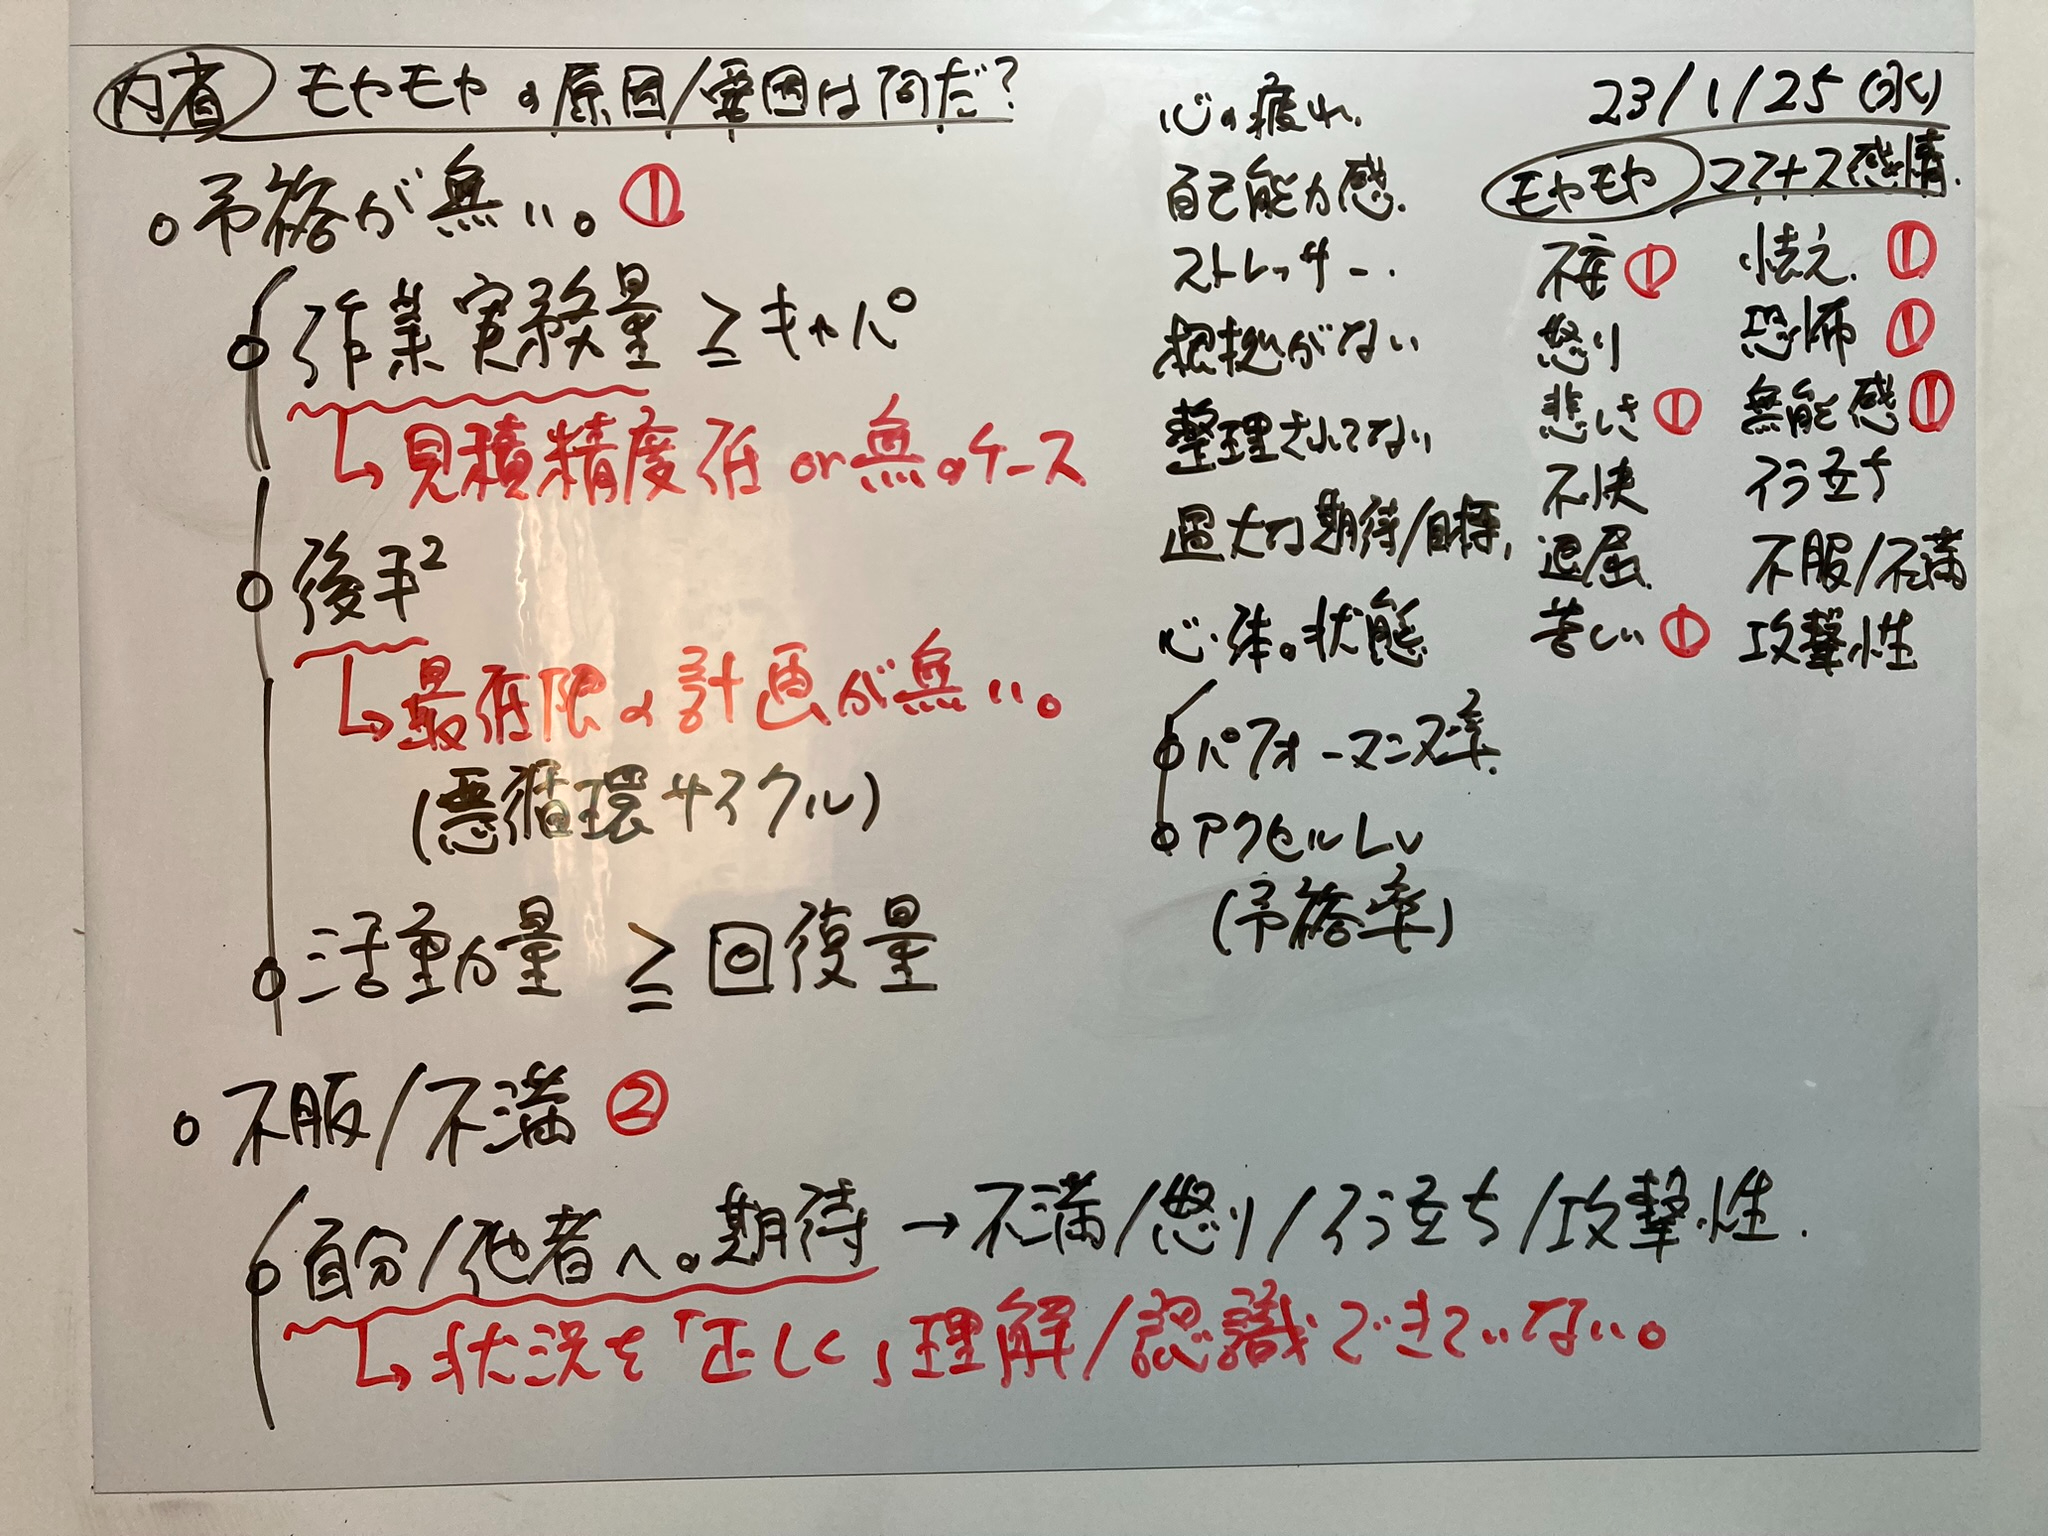 内省 モヤモヤの原因/要因は何だ?
○余裕が無い。①
作業実務量 ≧ キャパ
↳見積精度低 or 無のケース
後手²
↳最低限の計画が無い。
(悪循環サイクル)
活動力量 ≧ 回復量
○不服/不満 ②
自分/他者への期待 → 不満/怒り/イラ立ち/攻撃性.
↳状況を「正しく」理解/認識できていない。
心の疲れ.
自己能力感.
ストレッサー.
根拠がない
整理されてない
過大な期待/目標,
心・体の状態
パフォーマンス率.
アクセルLv
(余裕率)
23/1/25 (水)
モヤモヤ マイナス感情.
不安①
怒り
悲しさ①
不快
退屈.
苦しい①
怯え. ①
恐怖 ①
無能感①
イラ立ち
不服/不満
攻撃性